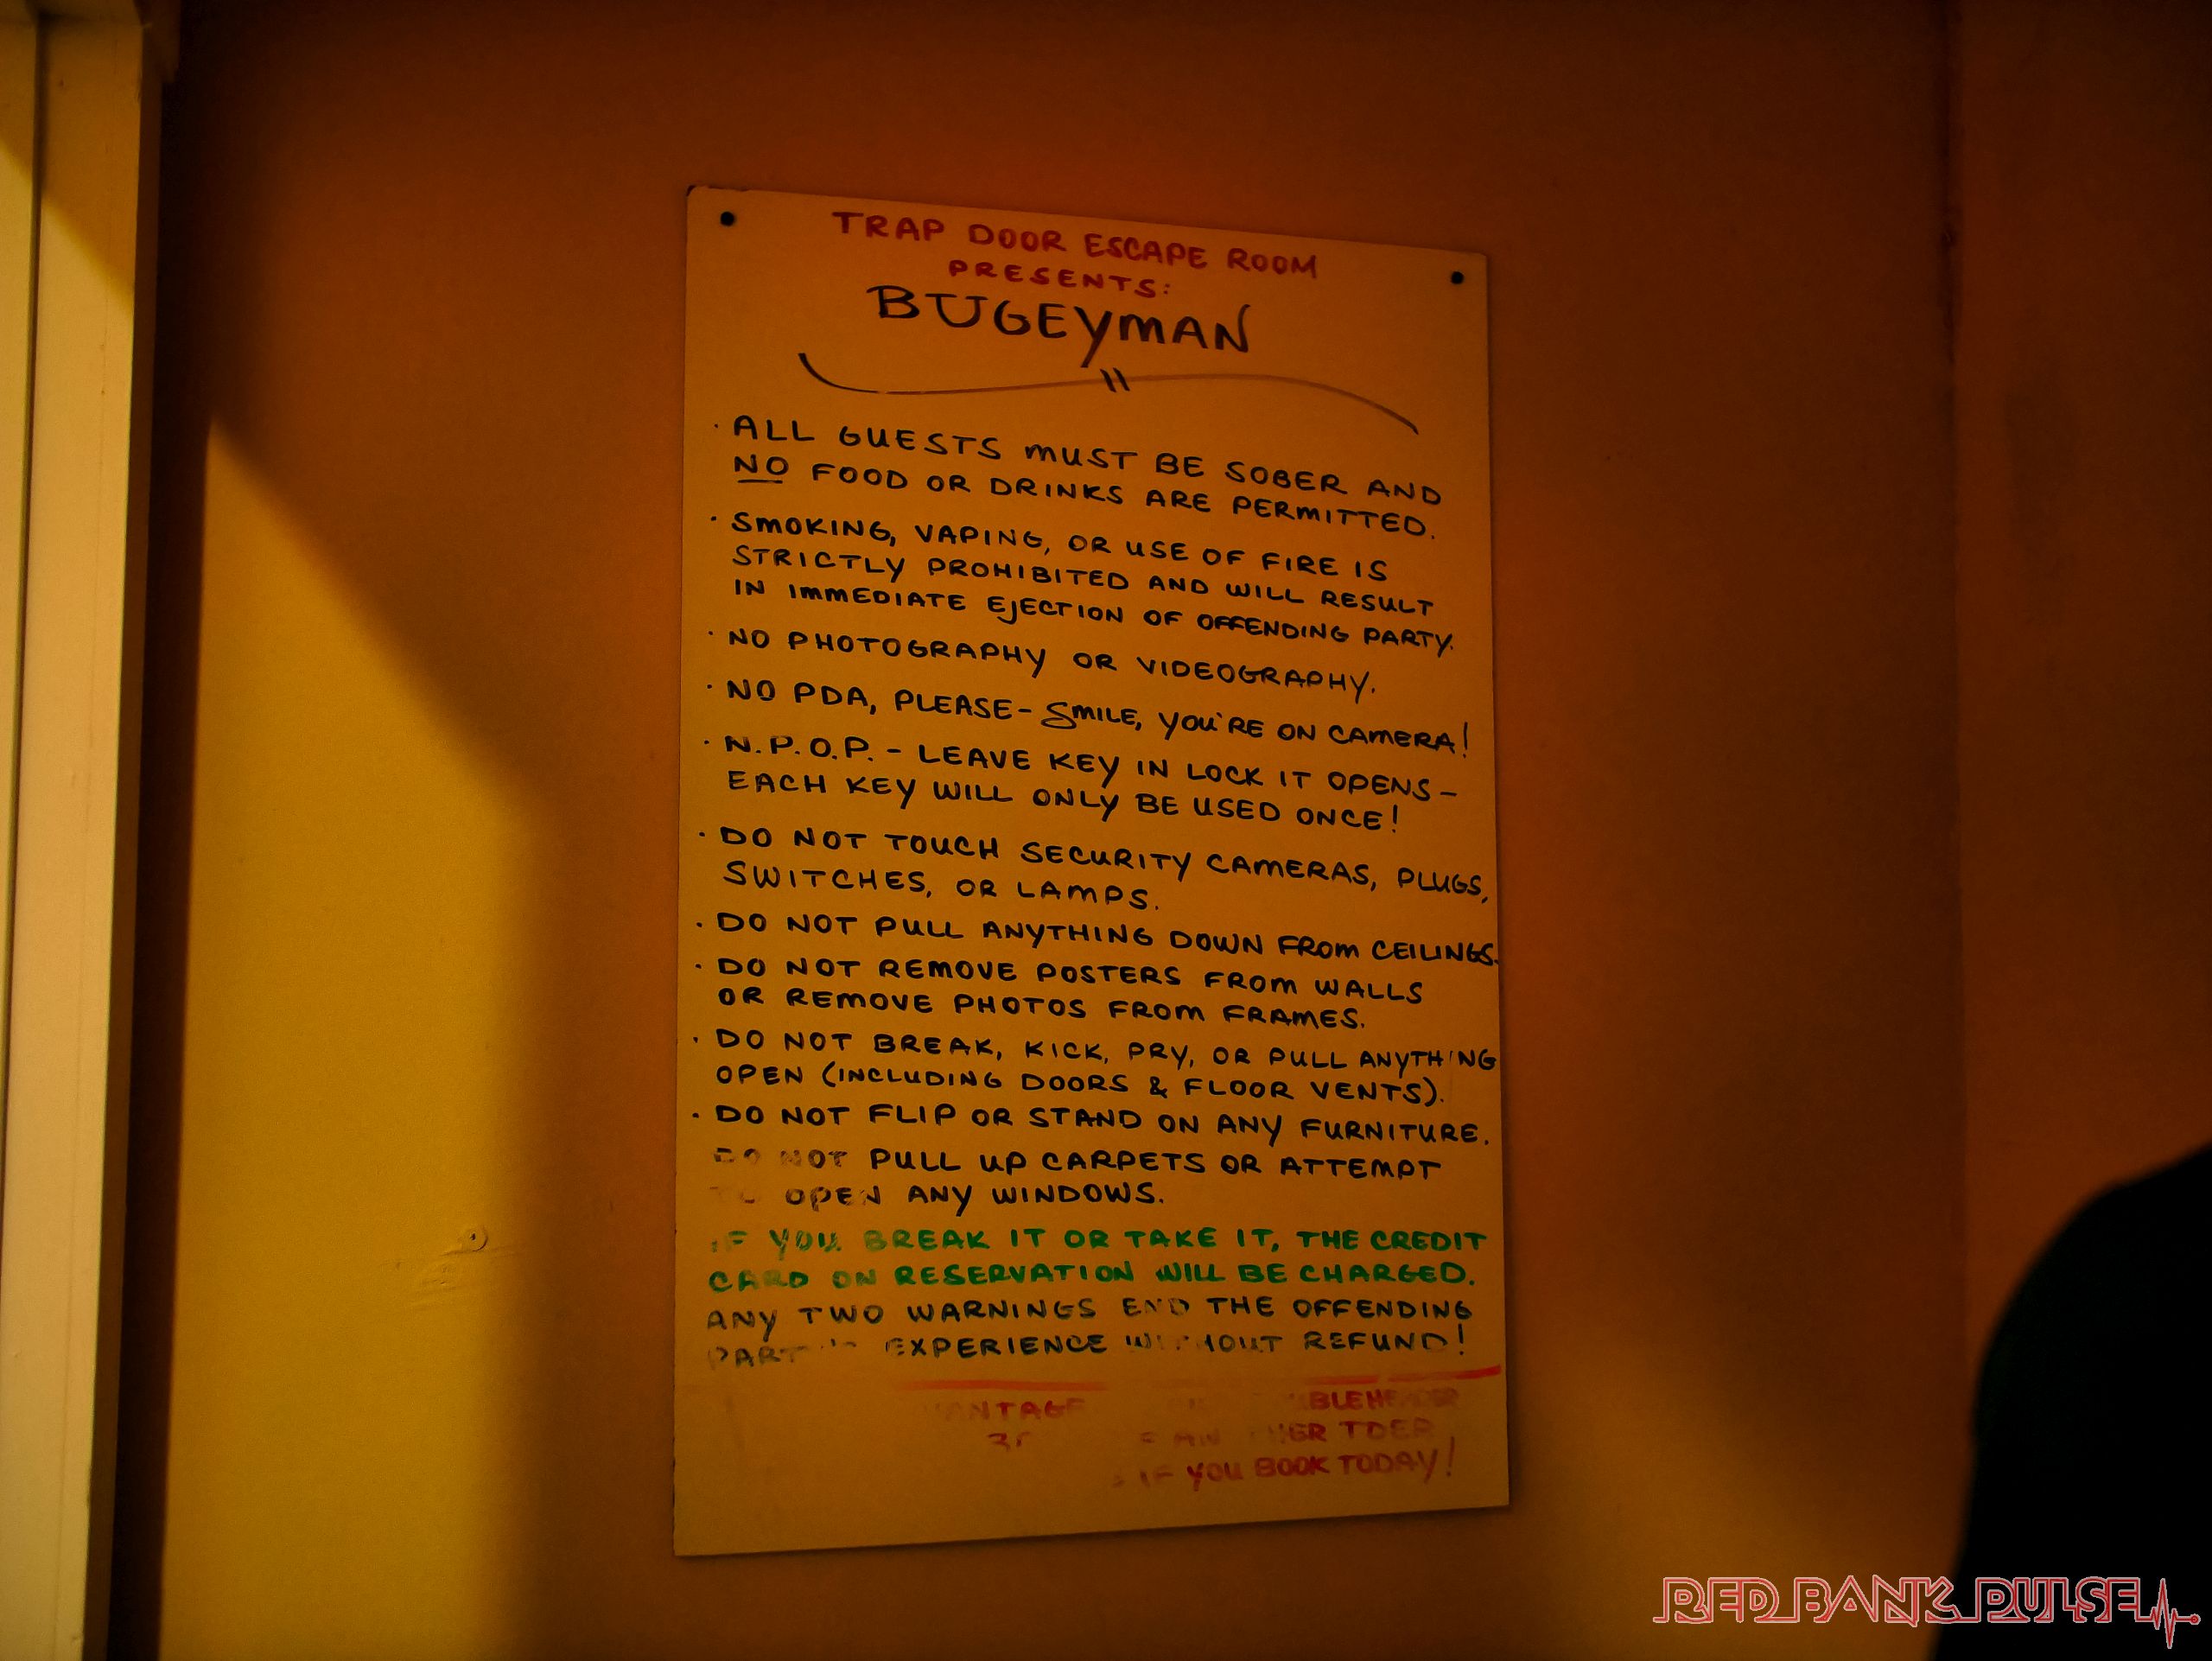 TRAP DOOR ESCAPE ROOM
PRESENTS:
BUGEYMAN
· ALL GUESTS MUST BE SOBER AND
NO FOOD OR DRINKS ARE PERMITTED.
· SMOKING, VAPING, OR USE OF FIRE IS
STRICTLY PROHIBITED AND WILL RESULT
IN IMMEDIATE EJECTION OF OFFENDING PARTY.
· NO PHOTOGRAPHY OR VIDEOGRAPHY.
· NO PDA, PLEASE - SMILE, YOU'RE ON CAMERA!
· N.P.O.P. - LEAVE KEY IN LOCK IT OPENS -
EACH KEY WILL ONLY BE USED ONCE!
· DO NOT TOUCH SECURITY CAMERAS, PLUGS,
SWITCHES, OR LAMPS.
· DO NOT PULL ANYTHING DOWN FROM CEILINGS.
· DO NOT REMOVE POSTERS FROM WALLS
OR REMOVE PHOTOS FROM FRAMES.
· DO NOT BREAK, KICK, PRY, OR PULL ANYTHING
OPEN (INCLUDING DOORS & FLOOR VENTS).
· DO NOT FLIP OR STAND ON ANY FURNITURE.
DO NOT PULL UP CARPETS OR ATTEMPT
TO OPEN ANY WINDOWS.
IF YOU BREAK IT OR TAKE IT, THE CREDIT
CARD ON RESERVATION WILL BE CHARGED.
ANY TWO WARNINGS END THE OFFENDING
EXPERIENCE WITHOUT REFUND!
TDER
IF YOU BOOK TODAY!
RED BANK PULSE